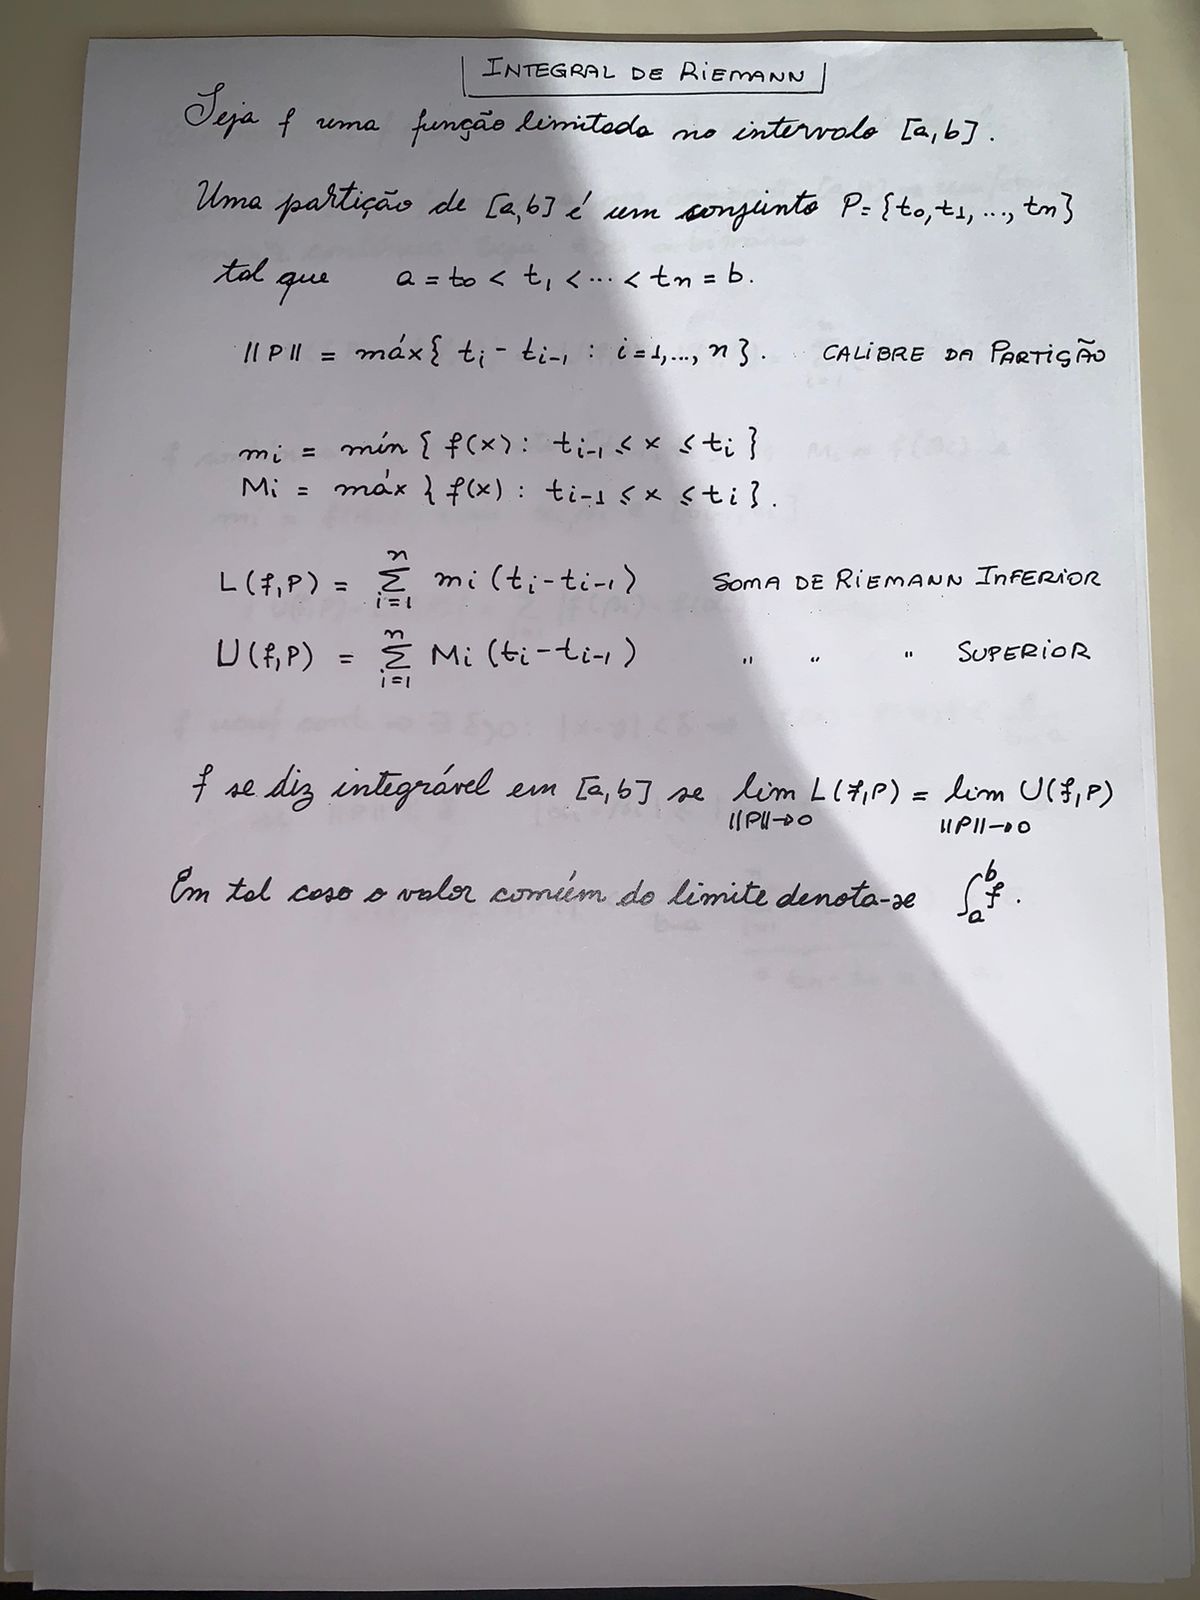 INTEGRAL DE RIEMANN
Seja f uma função limitada no intervalo [a,b].
Uma partição de [a,b] é um conjunto P={t₀,t₁,...,tn}
tal que a = t₀ < t₁ < ... < tn = b.
||P|| = máx{ ti - ti-1 : i=1,..., n}. CALIBRE DA PARTIÇÃO
mi = mín { f(x): ti-1 ≤ x ≤ ti }
Mi = máx { f(x): ti-1 ≤ x ≤ ti }.
L(f,P) = ∑_{i=1}^{n} mi (ti-ti-1) SOMA DE RIEMANN INFERIOR
U(f,P) = ∑_{i=1}^{n} Mi (ti-ti-1) " " " SUPERIOR
f se diz integrável em [a,b] se lim_{||P||→0} L(f,P) = lim_{||P||→0} U(f,P)
Em tal caso o valor comúm do limite denota-se ∫_a^b f.